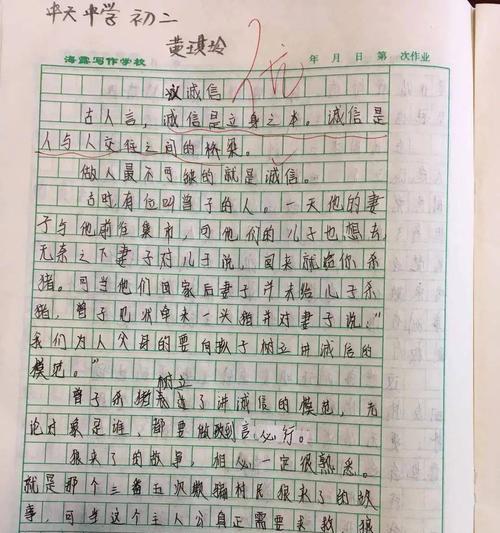 中天中学 初二
黄璟玲
海露写作学校 年 月 日 第 次作业
诚信
古人言,诚信是立身之本。诚信是
人与人交往之间的桥梁。
做人最不可缺的就是诚信。
古时,有位叫曾子的人。一天他的妻
子与他前往集市,可他们的儿子也想去,
无奈之下妻子对儿子说,回来就给你杀
猪。可当他们回家后妻子并未给儿子杀
猪,曾子见状牵来一头猪并对妻子说:“
我们为人父母的要向孩子树立讲诚信的
模范。”
树立
曾子杀猪 了讲诚信的模范,无
论对象是谁,都要做到言必行。
狼来了的故事,相必一定很熟悉。
就是那个三番五次欺骗村民狼来了的故
事,可当这个主人公真正需要求救,狼